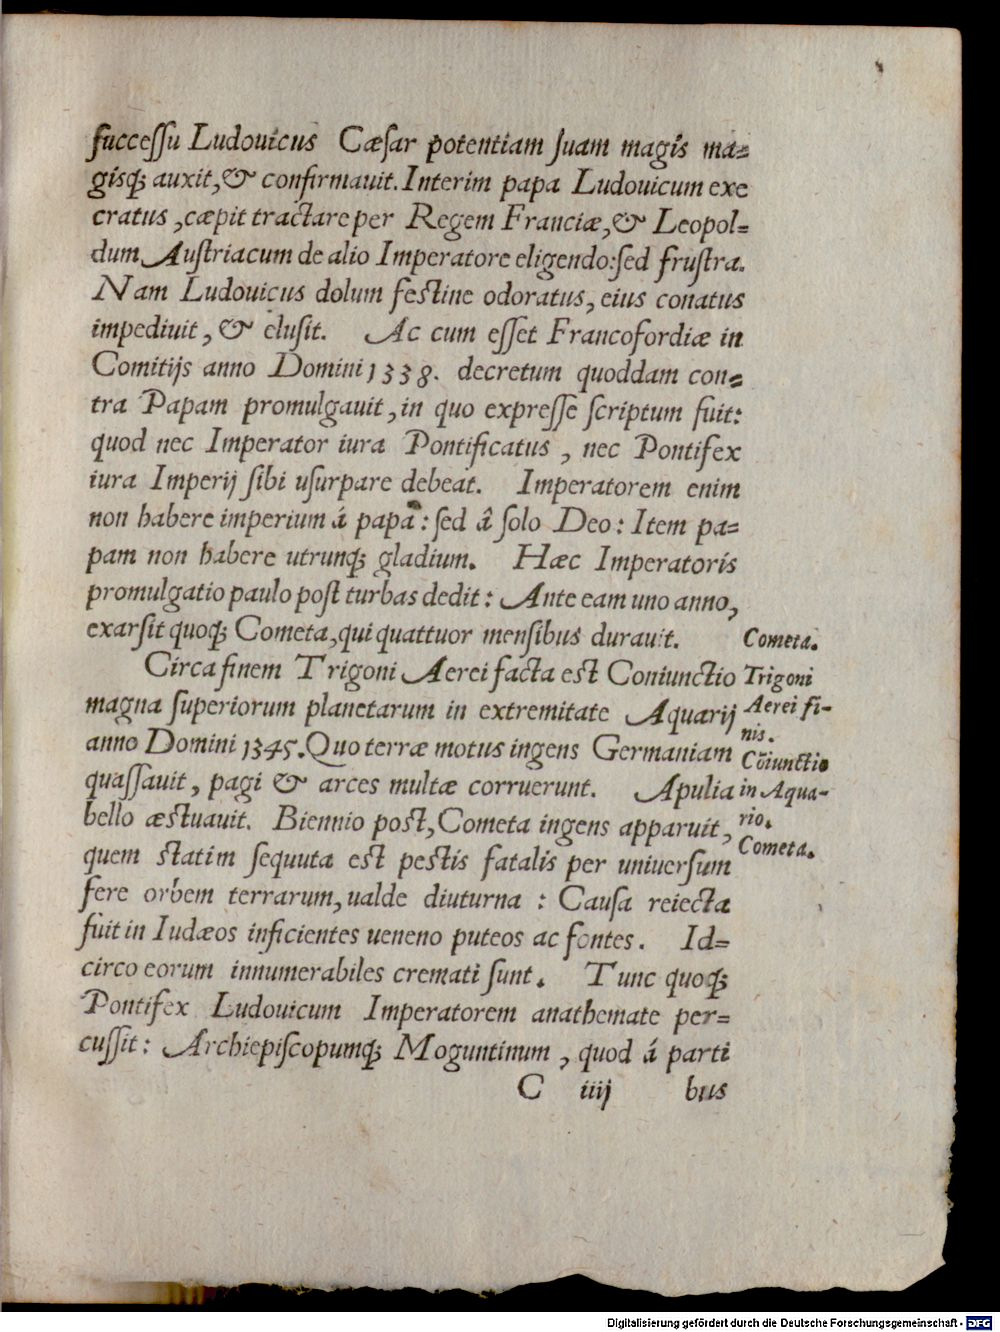 ſucceſſu Ludouicus Cæſar potentiam ſuam magis ma=
gisq́; auxit, & confirmauit. Interim papa Ludouicum exe
cratus, cæpit tractare per Regem Franciæ, & Leopol=
dum Auſtriacum de alio Imperatore eligendo: ſed fruſtra.
Nam Ludouicus dolum feſtine odoratus, eius conatus
impediuit, & eluſit. Ac cum eſſet Francofordiæ in
Comitijs anno Domini 1338. decretum quoddam con=
tra Papam promulgauit, in quo expreſſe ſcriptum fuit:
quod nec Imperator iura Pontificatus, nec Pontifex
iura Imperij ſibi uſurpare debeat. Imperatorem enim
non habere imperium á papa: ſed â ſolo Deo: Item pa=
pam non habere utrunq́; gladium. Hæc Imperatoris
promulgatio paulo poſt turbas dedit: Ante eam uno anno,
exarſit quoq́; Cometa, qui quattuor menſibus durauit.
Cometa.
Circa finem Trigoni Aerei facta eſt Coniunctio
magna ſuperiorum planetarum in extremitate Aquarij
anno Domini 1345. Quo terræ motus ingens Germaniam
quaſſauit, pagi & arces multæ corruerunt. Apulia
bello æſtuauit. Biennio poſt, Cometa ingens apparuit,
quem ſtatim ſequuta eſt peſtis fatalis per uniuerſum
fere orbem terrarum, ualde diuturna: Cauſa reiecta
fuit in Iudæos inficientes ueneno puteos ac fontes. Id=
circo eorum innumerabiles cremati ſunt. Tunc quoq́;
Pontifex Ludouicum Imperatorem anathemate per=
cuſſit: Archiepiſcopumq́; Moguntinum, quod á parti
Trigoni
Aerei fi-
nis.
Cōiunctio
in Aqua-
rio.
Cometa.
C iiij bus
Digitalisierung gefördert durch die Deutsche Forschungsgemeinschaft - DFG